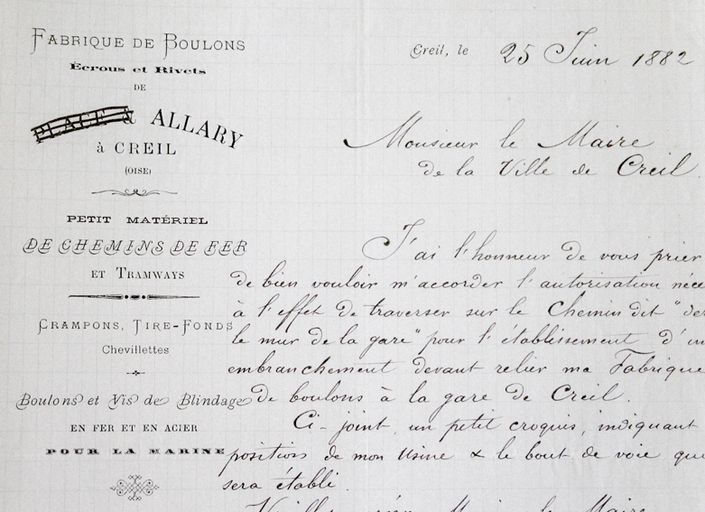 FABRIQUE DE BOULONS
Écrous et Rivets
DE
PLACE & ALLARY
à CREIL
(OISE)
PETIT MATÉRIEL
DE CHEMINS DE FER
ET TRAMWAYS
CRAMPONS, TIRE-FONDS
Chevillettes
Boulons et Vis de Blindage
EN FER ET EN ACIER
POUR LA MARINE
Creil, le 25 Juin 1882
Monsieur le Maire
de la Ville de Creil
J'ai l'honneur de vous prier
de bien vouloir m'accorder l'autorisation néce
à l'effet de traverser sur le Chemin dit "der
le mur de la gare" pour l'établissement d'un
embranchement devant relier ma Fabrique
de boulons à la gare de Creil.
Ci-joint, un petit croquis, indiquant
position de mon Usine & le bout de voie que
sera établi.